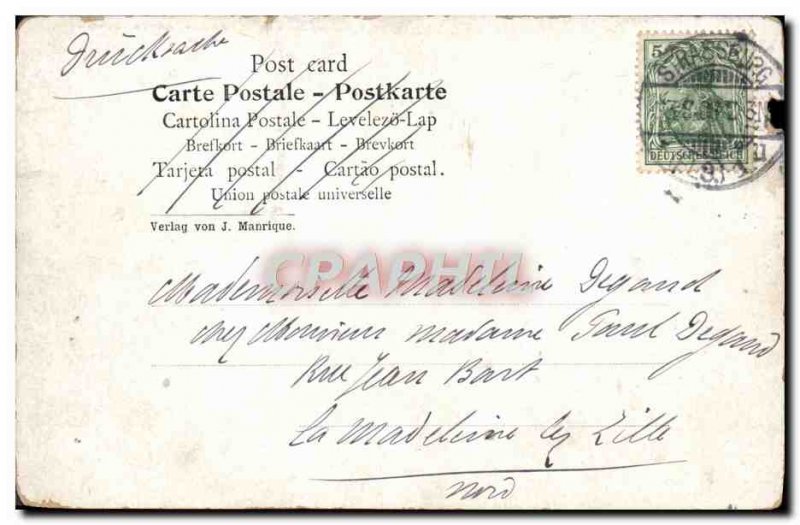 Drucksache
Post card
Carte Postale – Postkarte
Cartolina Postale – Levelező-Lap
Brefkort – Briefkaart – Brevkort
Tarjeta postal – Cartão postal.
Union postale universelle
Verlag von J. Manrique.
5
STRASSBURG
DEUTSCHES REICH
CPAPHIL
Mademoiselle Madeleine Degand
chez Monsieur Madame Paul Degand
Rue Jean Bart
La Madeleine lez Lille
Nord